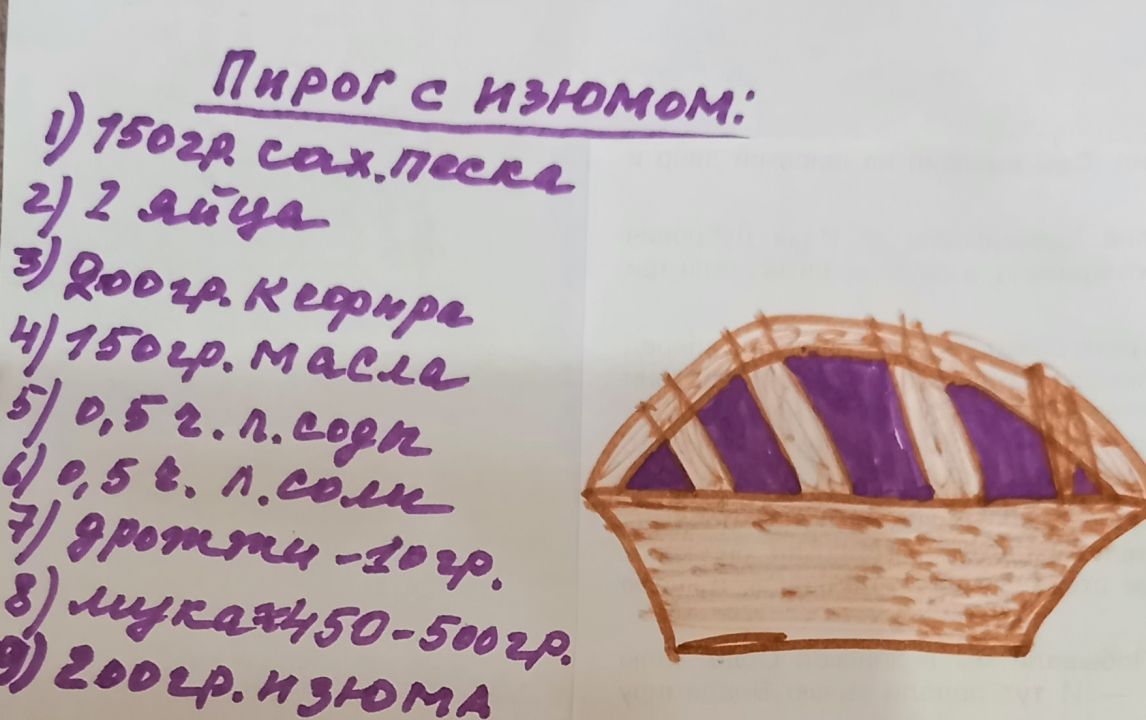 Пирог с изюмом:
1) 150гр. сах. песка
2) 2 яйца
3) 200гр. кефира
4) 150гр. масла
5) 0,5 ч. л. соды
6) 0,5 ч. л. соли
7) дрожжи - 10 гр.
8) мука ≈ 450-500гр.
9) 200гр. изюма